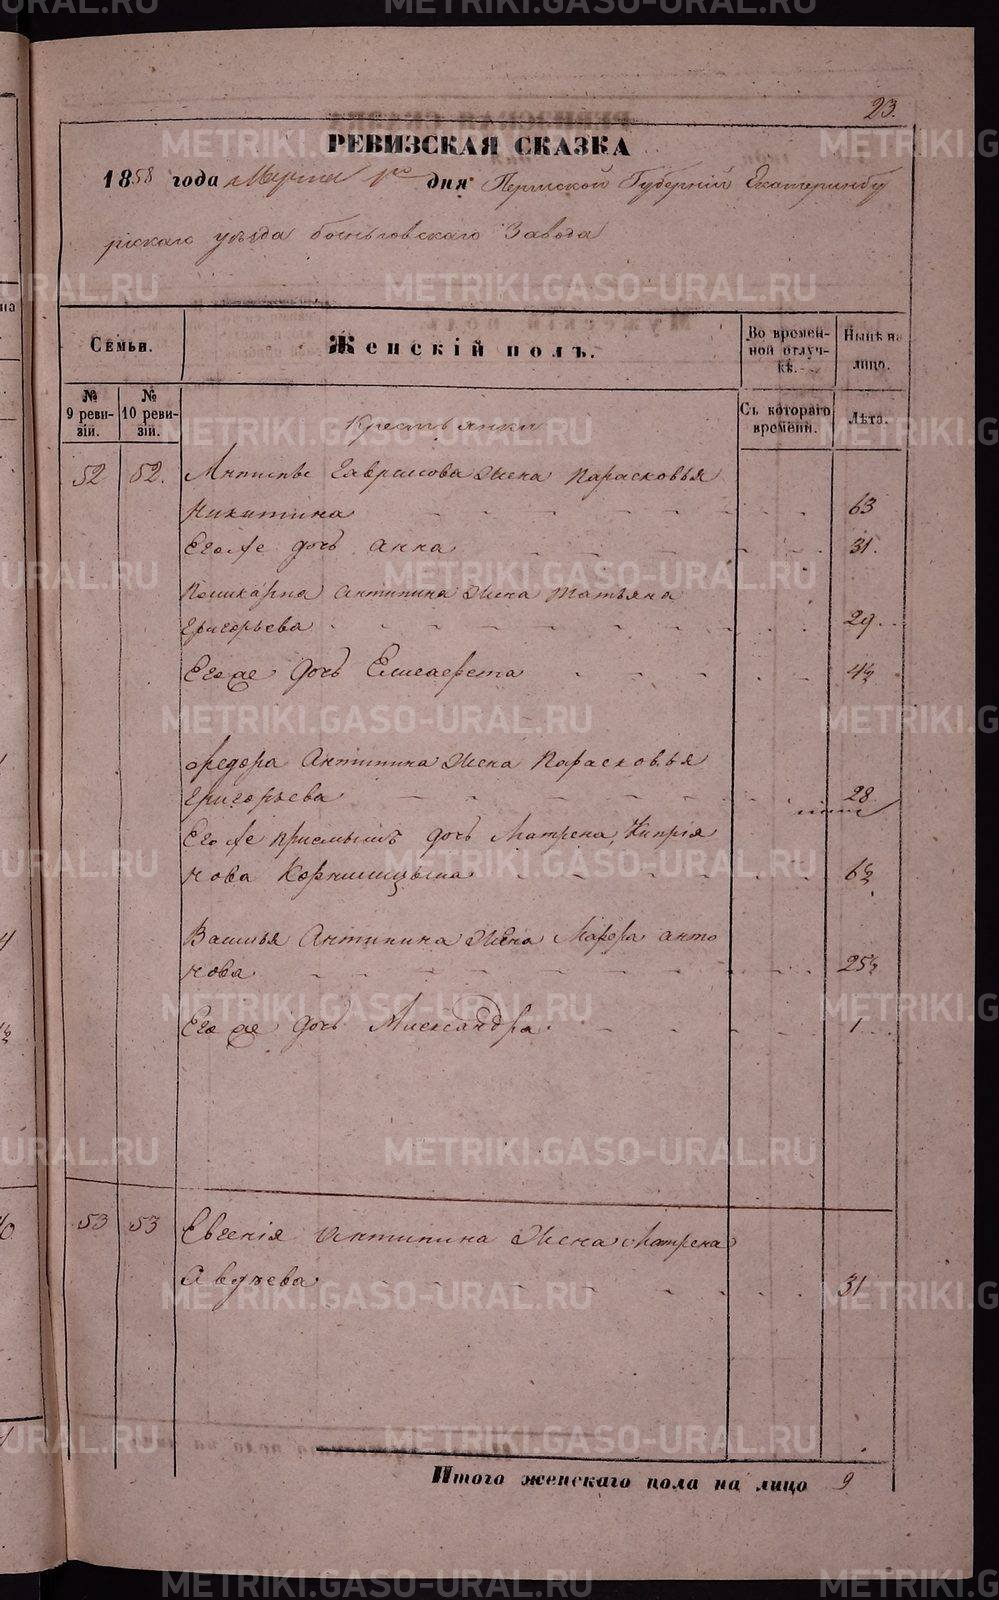 23.
РЕВИЗСКАЯ СКАЗКА
1858 года Марта 1го дня Пермской Губерніи Екатеринбу
ргскаго уѣзда Быньговскаго Завода
Семьи.
Женскій полъ.
Во времен-
ной отлуч-
кѣ.
Нынѣ на
лицо.
№
9 реви-
зіи.
№
10 реви-
зіи.
Съ котораго
времени.
Лѣта.
Крестьянки
52 52. Антипы Гаврилова Жена Парасковья
Никитина 63
Его же дочь Анна 31.
Поликарпа Антипина Жена Татьяна
Григорьева 29
Его же Дочь Елисавета 4½
Федора Антипина Жена Парасковья
Григорьева 28
Его же приемышъ дочь Матрена, Кипрія
нова Кормилицына 6½
Василья Антипина Жена Марфа Анто
нова 25½
Его же дочь Александра 1
53 53 Евгенія Антипина Жена Матрена
Авдѣева 31
Итого женскаго пола на лицо 9
METRIKI.GASO-URAL.RU